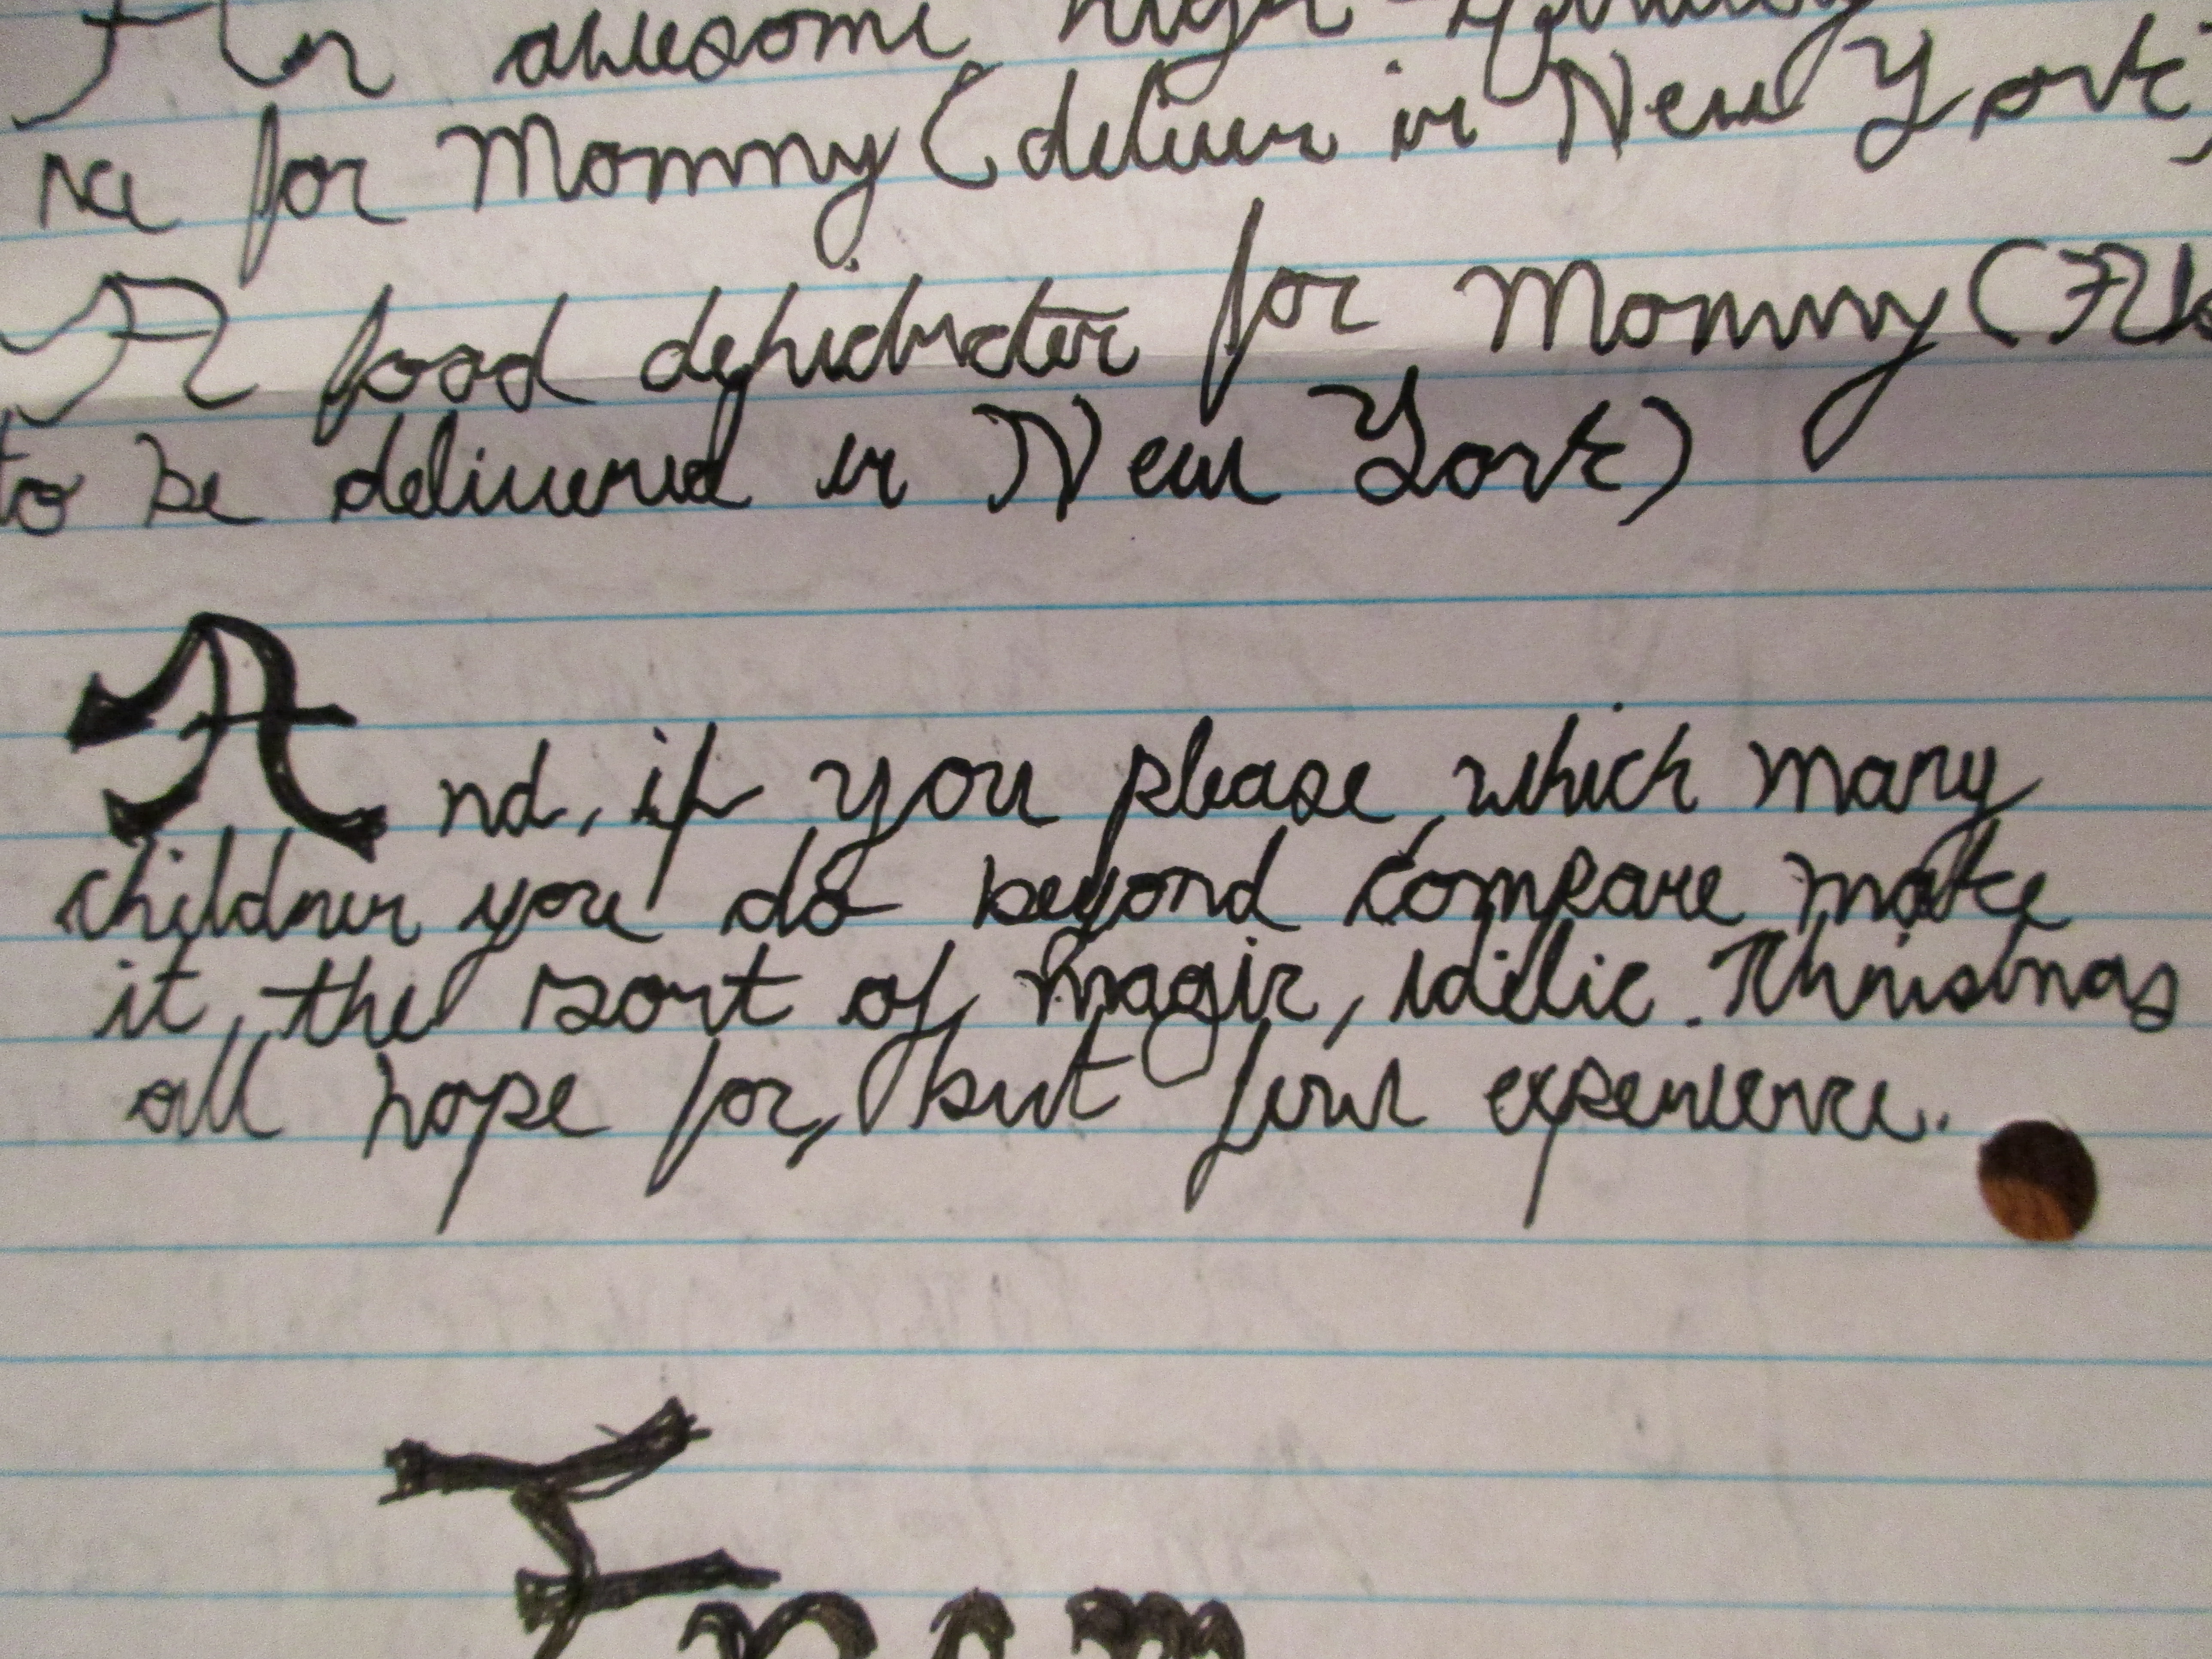 An awesome high-quality
for Mommy (deliver in New York)
A food dehidrater for Mommy (Also
to be delivered in New York)
And, if you please, which many
children you do beyond compare make
it, the sort of magic, idilic Christmas
all hope for, but few experience.
From